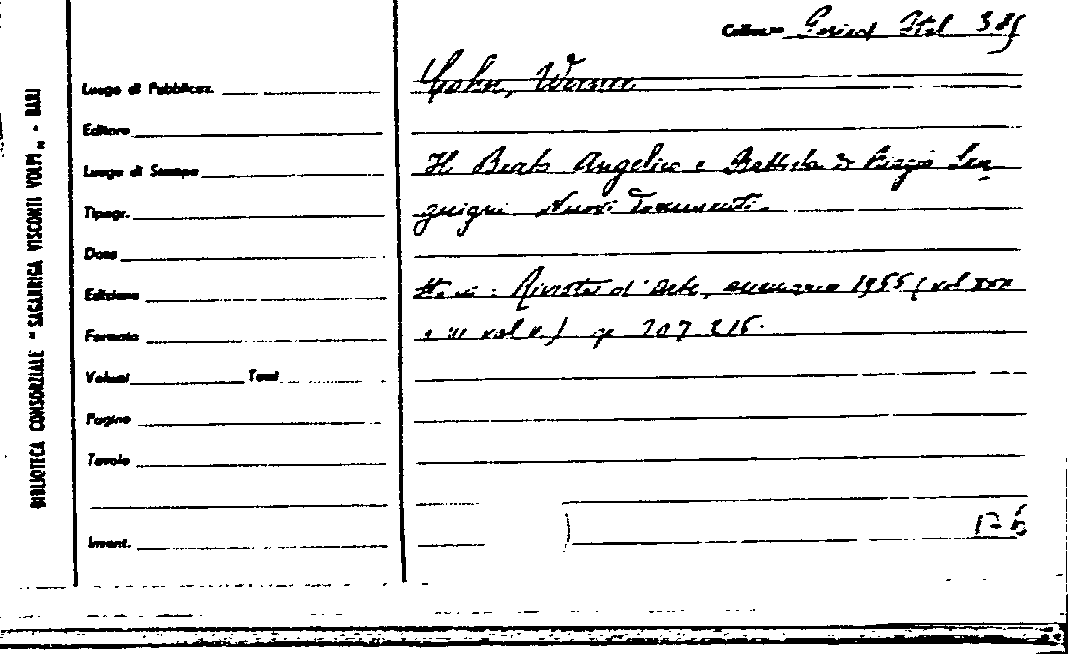 BIBLIOTECA CONSORZIALE "SAGARRIGA VISCONTI VOLPI" - BARI
Collocaz. Period Ital 385
Luogo di Pubblicaz.
Cohn, Werner
Editore
Luogo di Stampa
Il Beato Angelico e Battista di Biagio San-
Tipogr.
guigni. Nuovi Documenti.
Dono
Edizione
Rivista d'Arte, annuario 1955 (vol XXX
Formato
vol V.) 207-216.
Volumi Tomi
Pagine
Tavole
Invent.
176